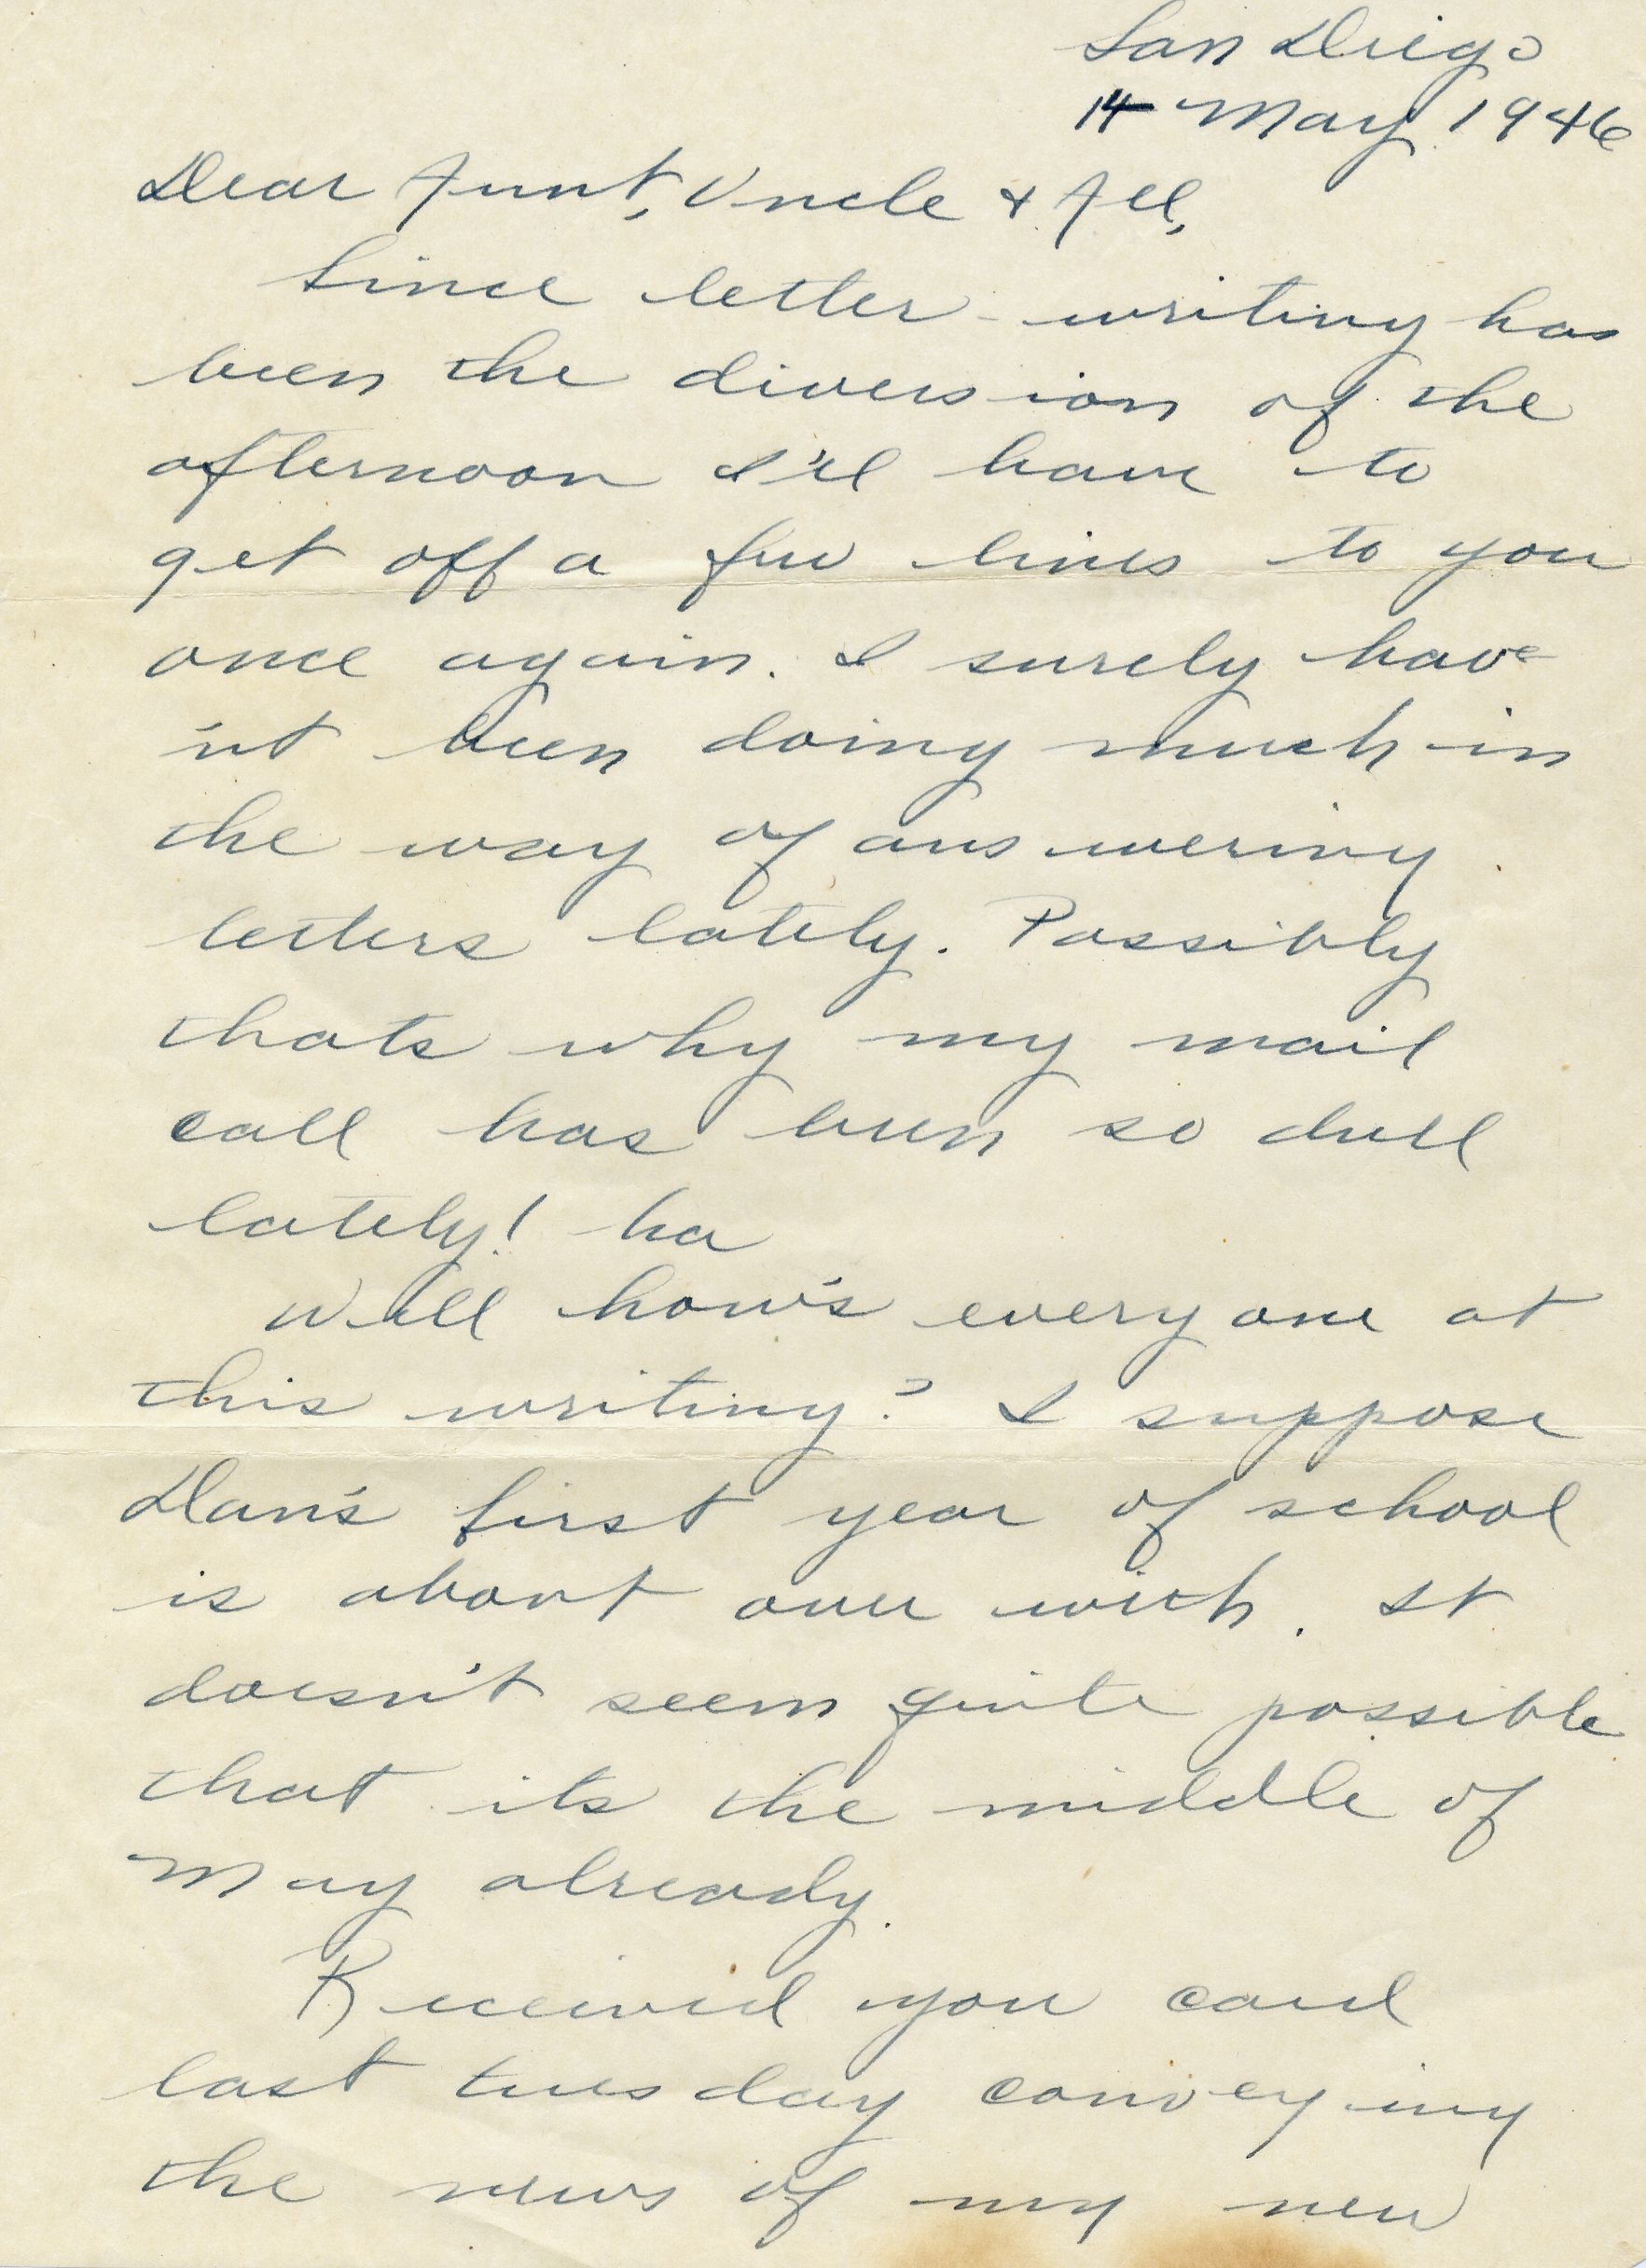 San Diego
14 May 1946
Dear Aunt, Uncle & All,
Since letter-writing has
been the diversion of the
afternoon I'll have to
get off a few lines to you
once again. I surely have
'nt been doing much in
the way of answering
letters lately. Possibly
thats why my mail
call has been so dull
lately! ha
Well how's everyone at
this writing? I suppose
Dan's first year of school
is about over with. It
doesn't seem quite possible
that its the middle of
May already.
Received you card
last tuesday conveying
the news of my new